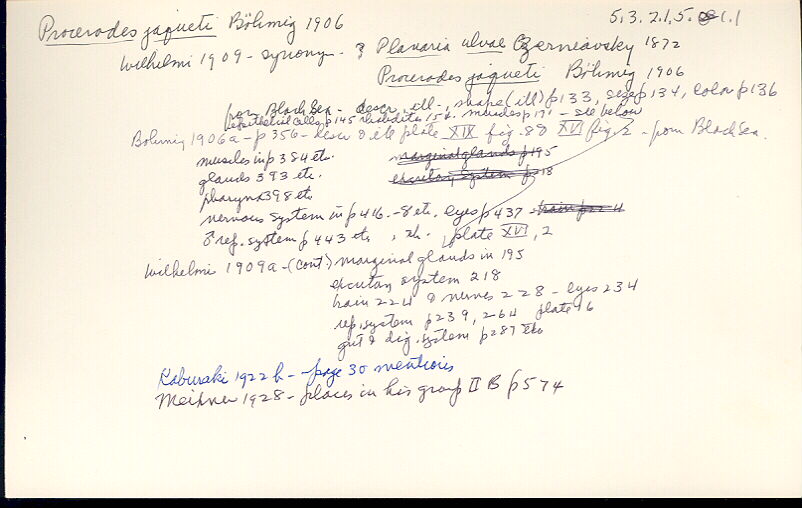 Procerodes jaqueti Böhmig 1906
5.3.2.1.5.1.1
Wilhelmi 1909 - synonym - of Planaria ulvae Czerniavsky 1872
Procerodes jaqueti Böhmig 1906
from Black Sea - descr., ill., shape (ill) p133, size p134, color p136
epithelial cells p145 rhabdites 156 muscles p171 - see below
Böhmig 1906a - p 356 - descr & ill plate XIX fig. 88 XVI fig 2 - from Black Sea.
muscles in p 384 etc.
marginal glands p195
glands 393 etc.
excretory system p218
pharynx 398 etc
nervous system in p 416 - 8 etc. eyes p 437 - brain p224
♂ rep. system p 443 etc, plate XVI, 2
Wilhelmi 1909a - (cont.) marginal glands in 195
excretory system 218
brain 224 & nerves 228 - eyes 234
rep. system p239, 264 plate 16
gut & dig. system p287 etc
Kaburaki 1922b - page 30 mentions
Meixner 1928 - places in his group II B p574